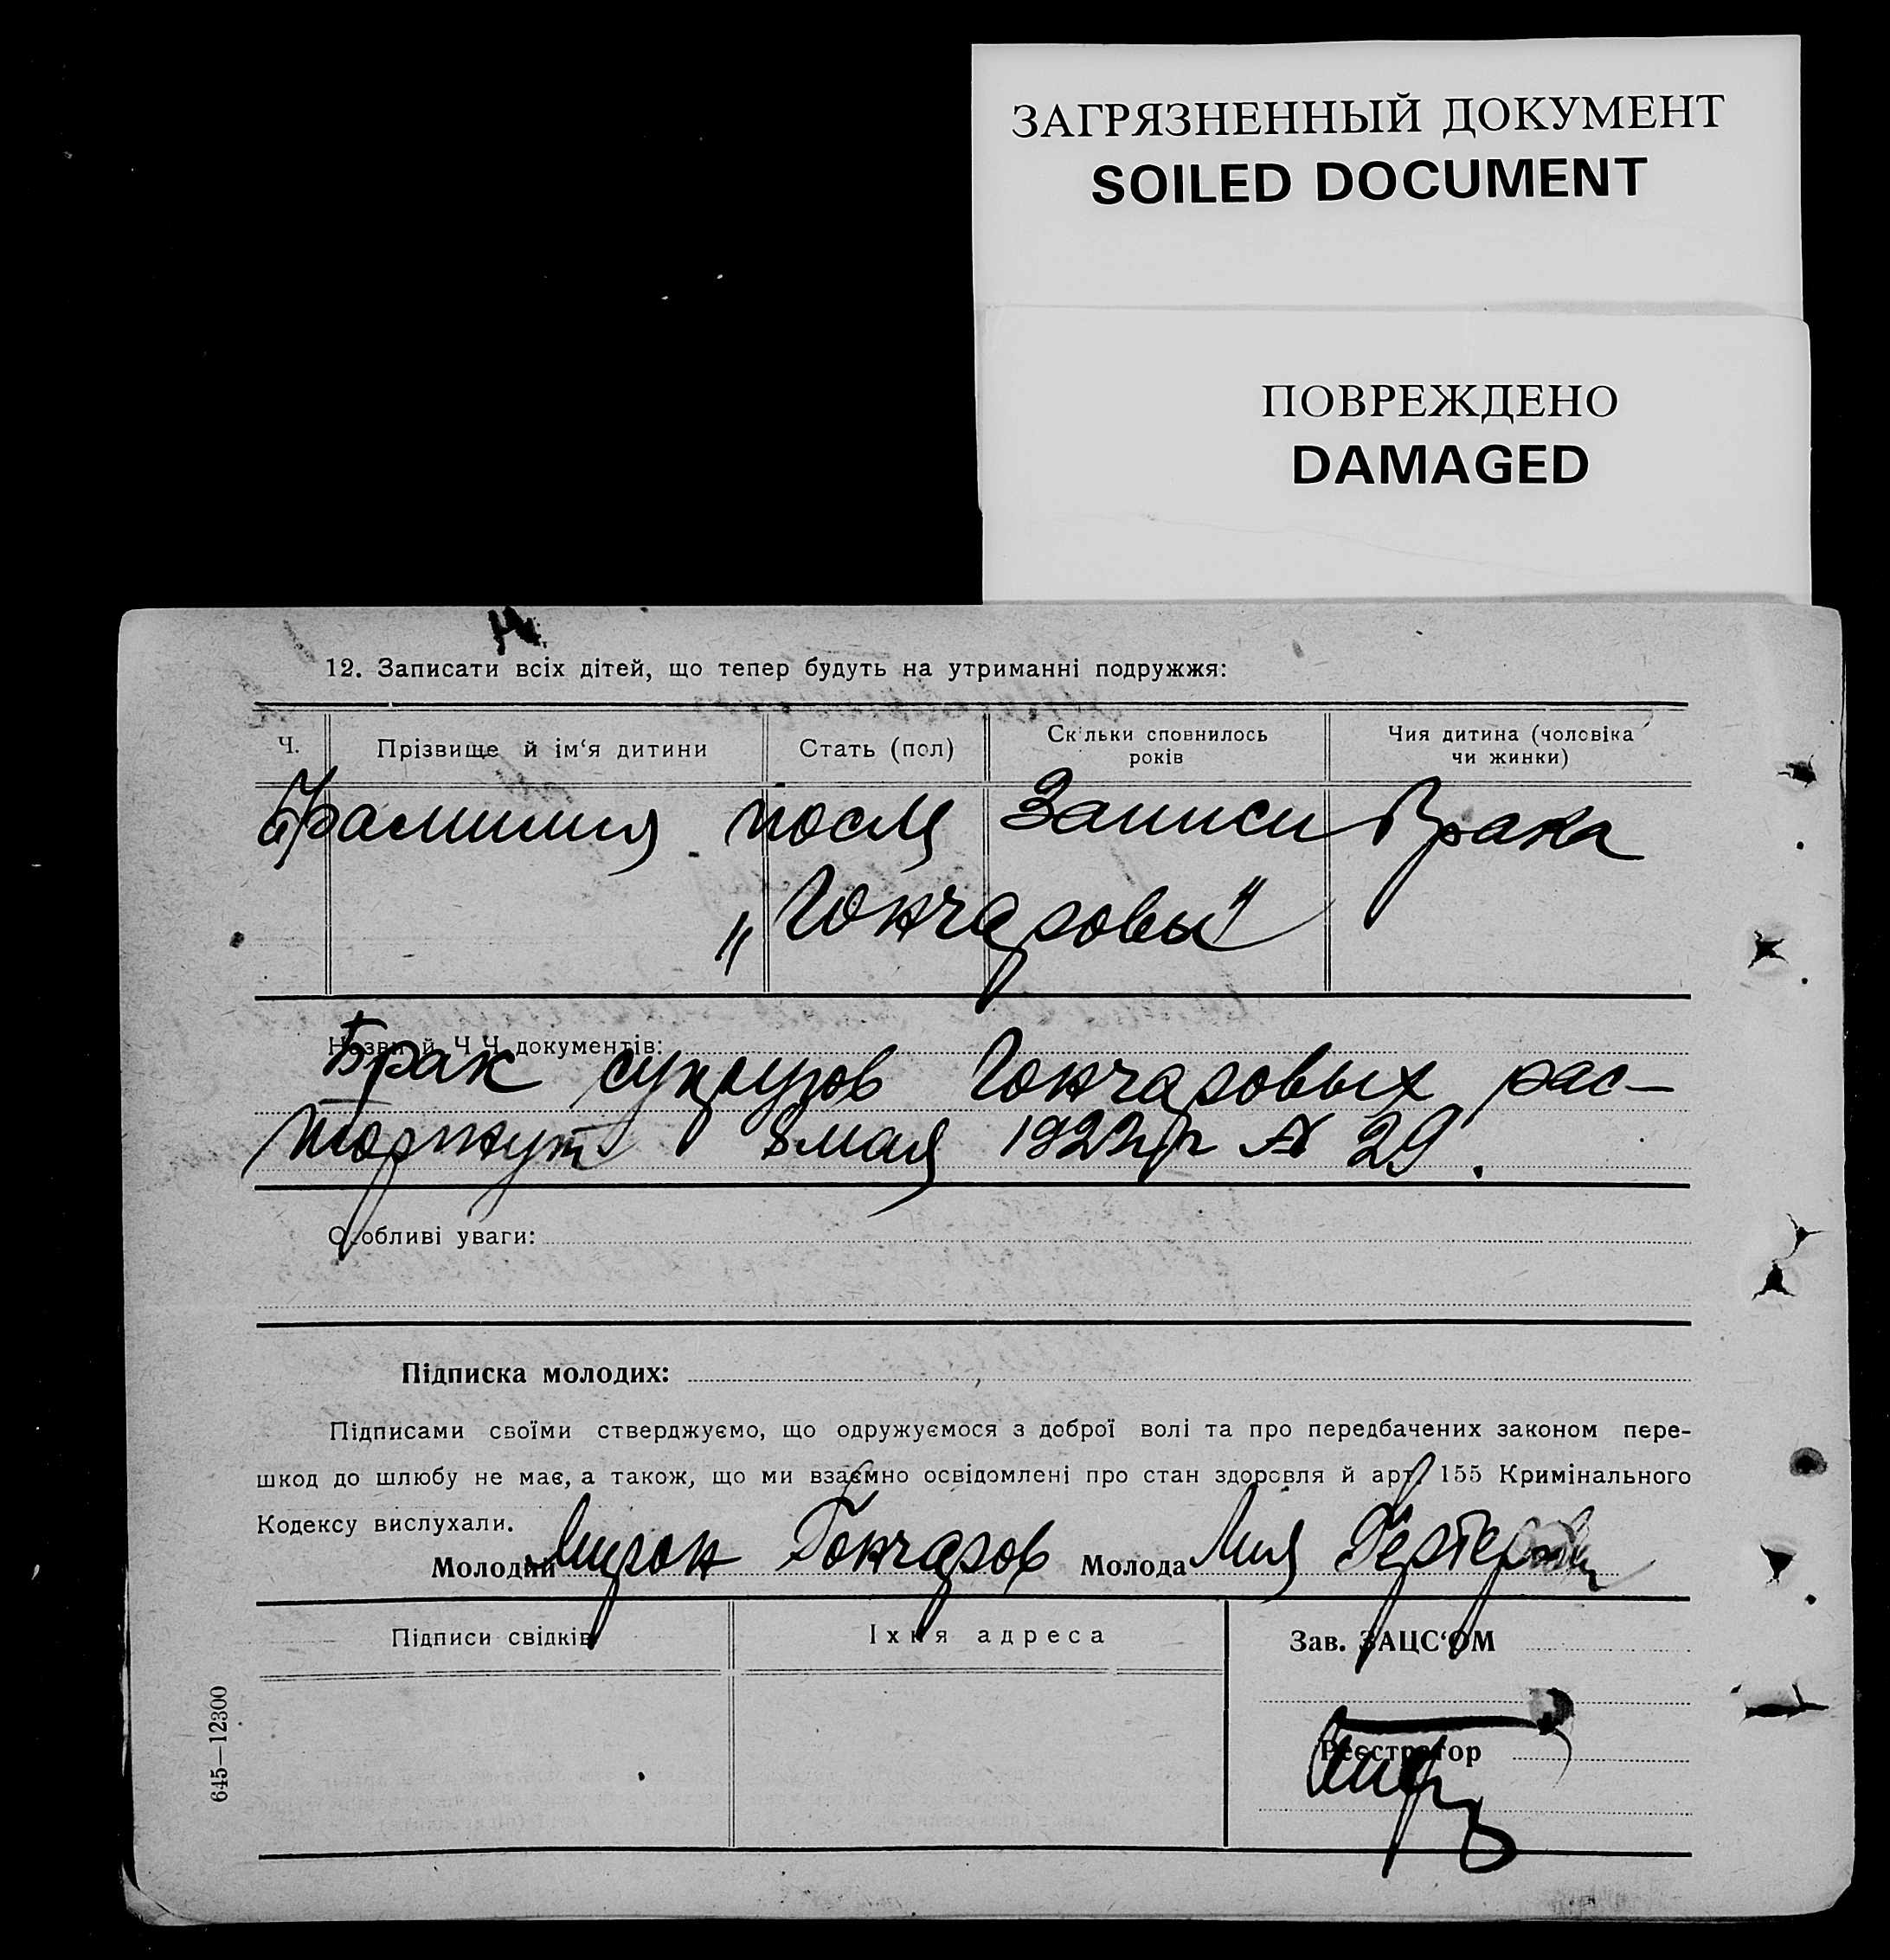 ЗАГРЯЗНЕННЫЙ ДОКУМЕНТ
SOILED DOCUMENT
ПОВРЕЖДЕНО
DAMAGED
12. Записати всіх дітей, що тепер будуть на утриманні подружжя:
Ч. Прізвище й ім‘я дитини Стать (пол) Скільки сповнилось років Чия дитина (чоловіка чи жинки)
Фамилия после Записи Брака
„Гончаровы"
Назви й Ч.Ч. документів:
Брак супругов Гончаровых рас-
торгнут 8 мая 1922 гр № 29.
Особливі уваги:
Підписка молодих:
Підписами своїми стверджуємо, що одружуємося з доброї волі та про передбачених законом пере-
шкод до шлюбу не має, а також, що ми взаємно освідомлені про стан здоровля й арт. 155 Кримінального
Кодексу вислухали.
Молодий Мирон Гончаров Молода Лия
Підписи свідків Їхня адреса Зав. ЗАЦС‘ОМ
Реєстратор
645—12300